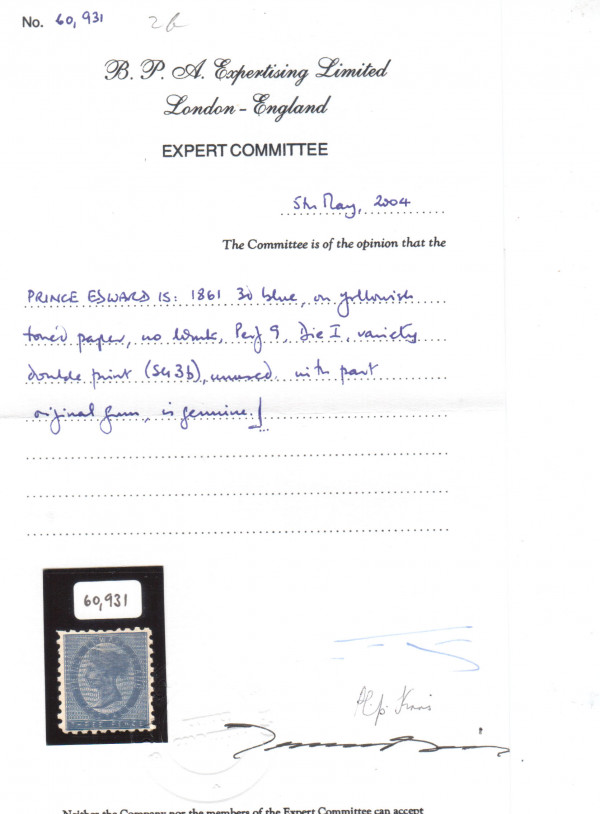 No. 60,931 2b
B. P. A. Expertising Limited
London - England
EXPERT COMMITTEE
5th May, 2004
The Committee is of the opinion that the
PRINCE EDWARD IS: 1861 3d blue, on yellowish
toned paper, no wmk, Perf 9, Die I, variety
double print (SG 3b), unused with part
original gum, is genuine.
60,931
Neither the Company nor the members of the Expert Committee can accept